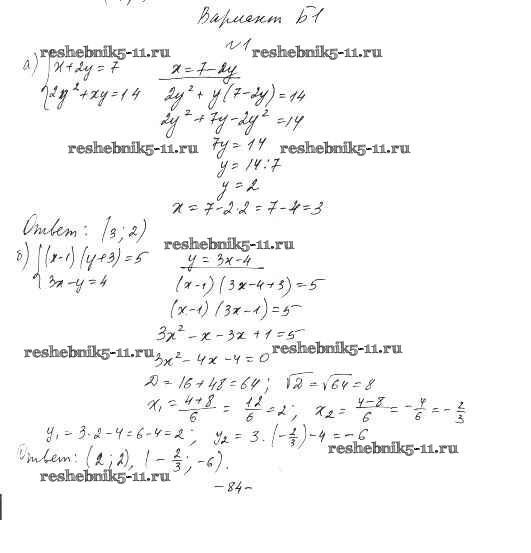 Вариант Б1
№1
reshebnik5-11.ru reshebnik5-11.ru
а) {x+2y=7 x=7-2y
{2y²+xy=14 2y²+y(7-2y)=14
2y²+7y-2y²=14
reshebnik5-11.ru 7y=14 reshebnik5-11.ru
y=14:7
y=2
x=7-2·2=7-4=3
Ответ: (3;2)
reshebnik5-11.ru
б) {(x-1)(y+3)=5 y=3x-4
{3x-y=4 (x-1)(3x-4+3)=5
(x-1)(3x-1)=5
3x²-x-3x+1=5
reshebnik5-11.ru reshebnik5-11.ru
3x²-4x-4=0
D=16+48=64; √D=√64=8
x₁=(4+8)/6=12/6=2; x₂=(4-8)/6=-4/6=-2/3
y₁=3·2-4=6-4=2; y₂=3·(-2/3)-4=-6
Ответ: (2;2), (-2/3;-6).
reshebnik5-11.ru
reshebnik5-11.ru
-84-